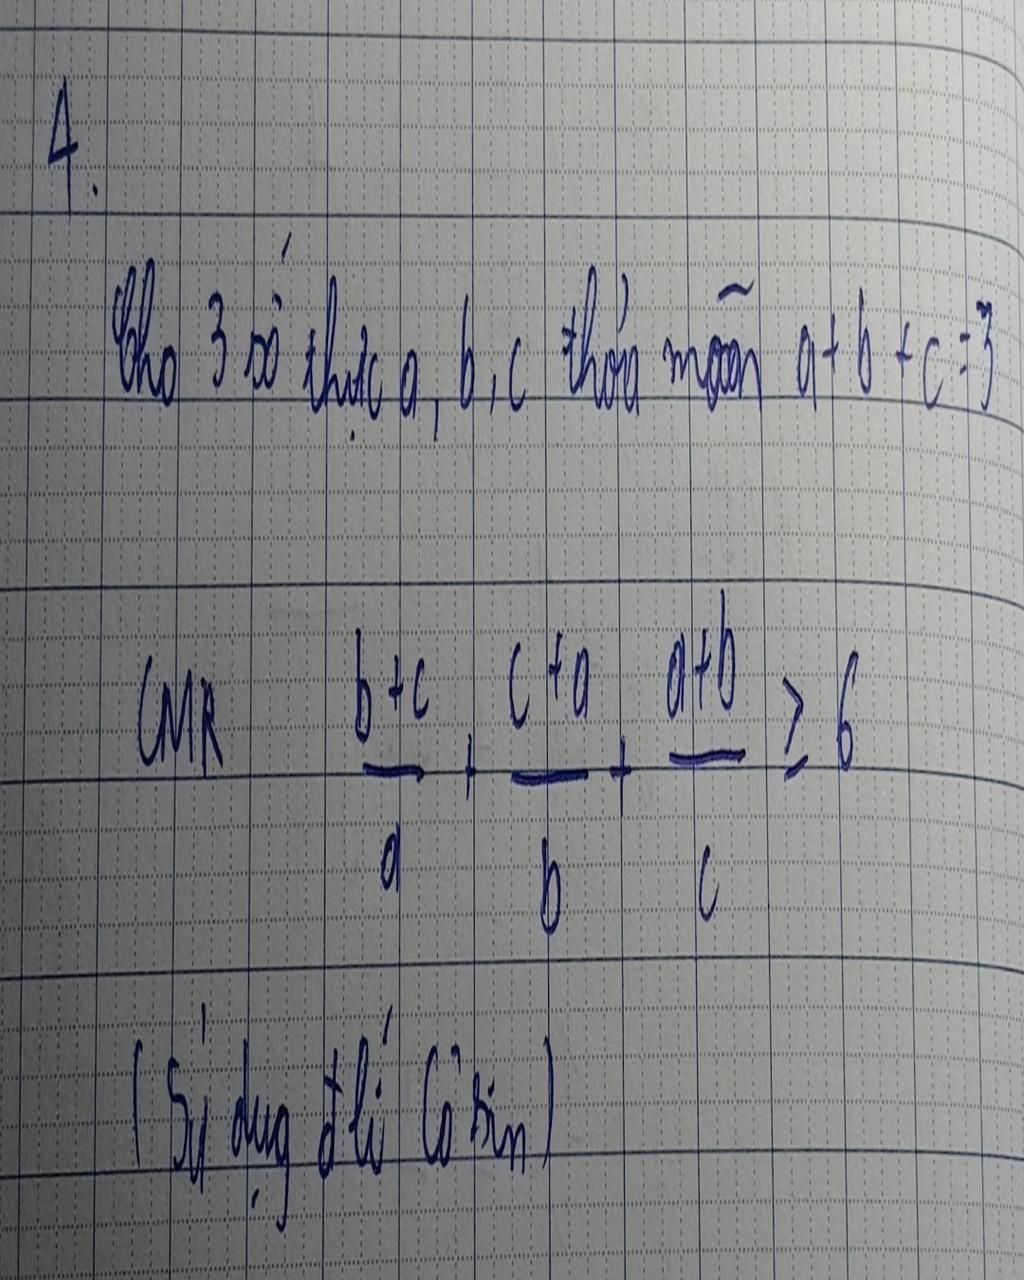 4.
Cho 3 số thực a, b, c thỏa mãn a + b + c = 3
CMR b + c / a + c + a / b + a + b / c ≥ 6
(Sử dụng đlí Cô sin)